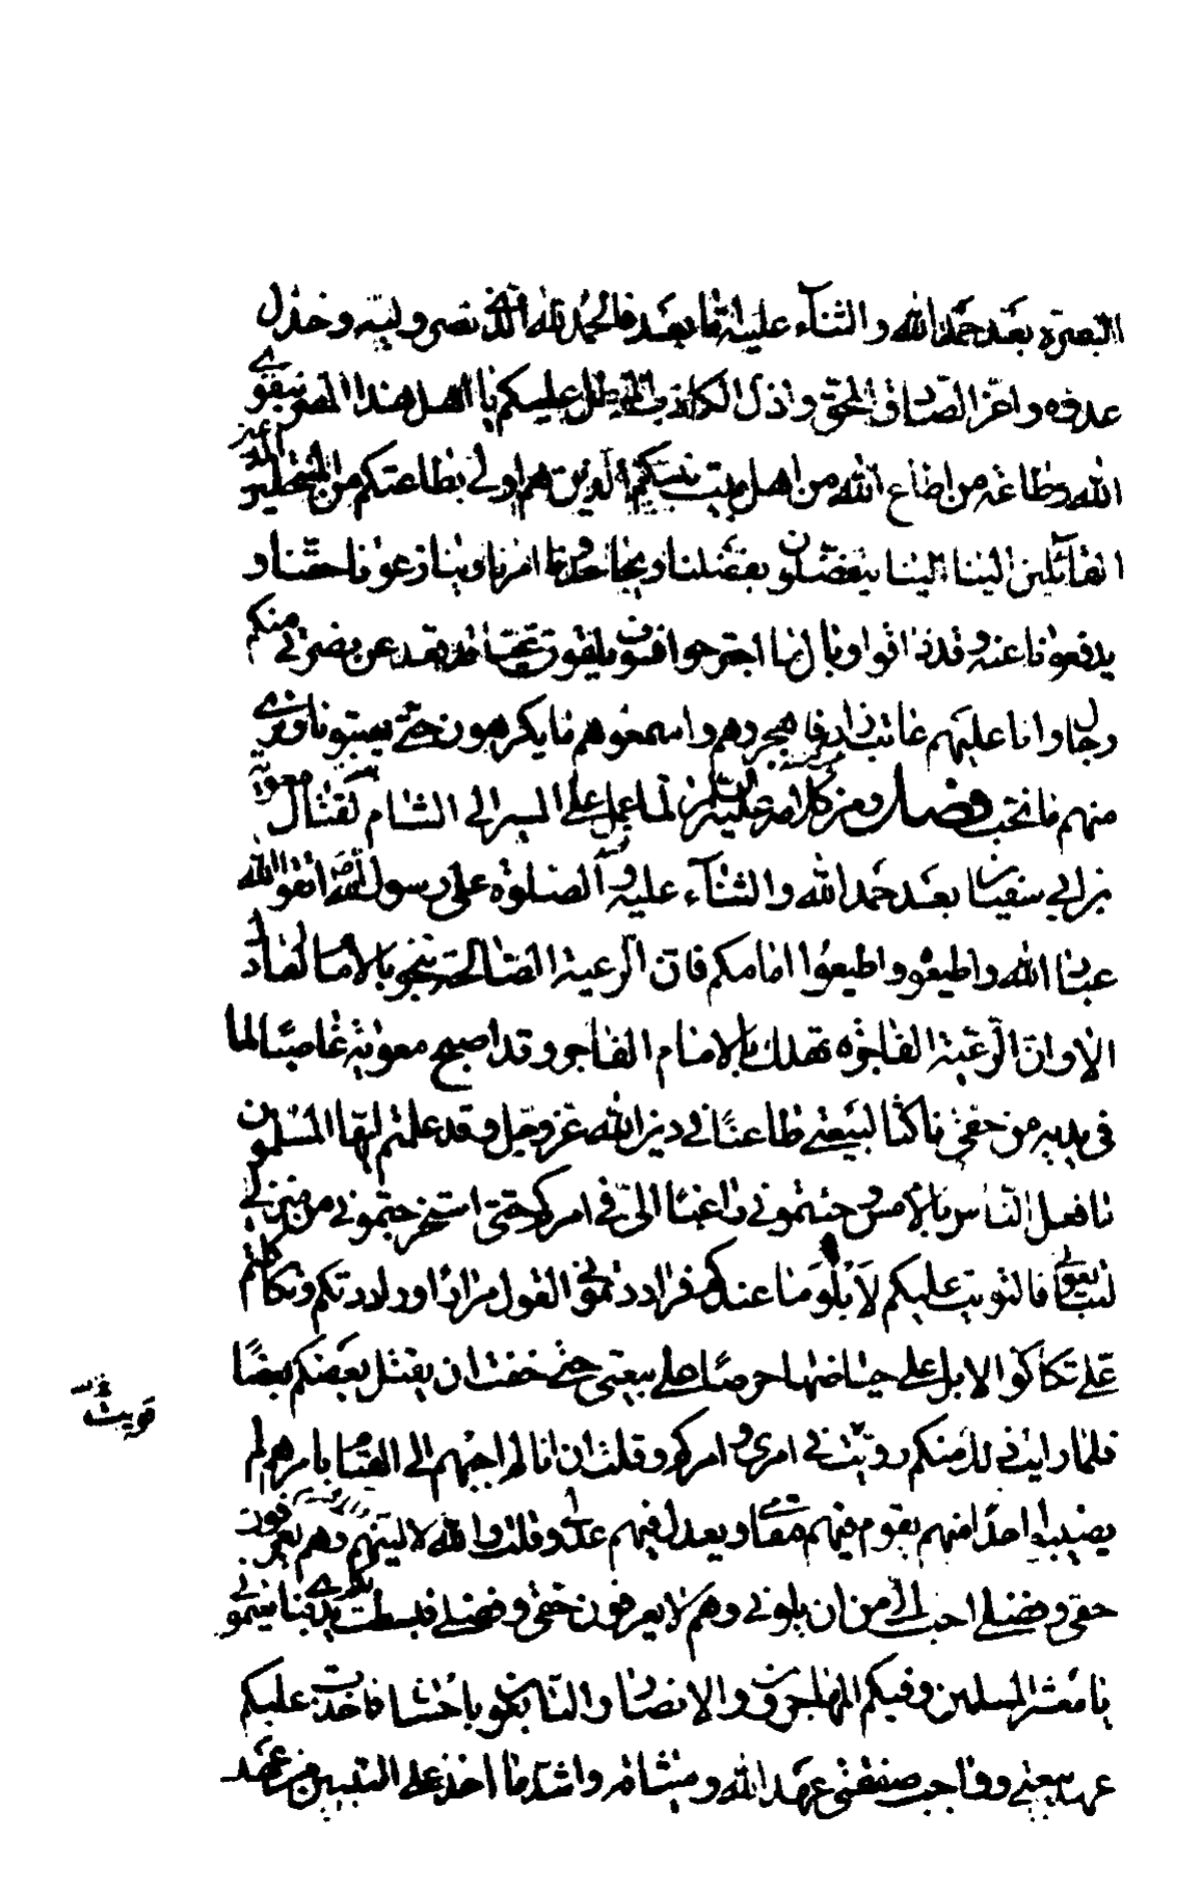 البصرة بعد حمد الله والثناء عليه اما بعد فالحمد لله الذي نصر وليه وخذل
عدوه واعز الصادق المحق واذل الكاذب المبطل عليكم يا اهل هذا المصر بتقوى
الله وطاعة من اطاع الله من اهل بيت نبيكم الذين هم اولى بطاعتكم من المنتحلين المدعين
القائلين الينا الينا يتفضلون بفضلنا ويجاحدونا امرنا وينازعونا حقنا و
يدفعونا عنه وقد ذاقوا وبال ما اجترحوا فسوف يلقون غيا قد قعد عن نصرتي منكم
رجال وانا عليهم عاتب زار فاهجروهم واسمعوهم ما يكرهون حتى يعتبونا ونرى
منهم ما نحب فصل ومن كلامه عليه السلام لما عمل على المسير الى الشام لقتال معوية
بن ابي سفيان بعد حمد الله والثناء عليه والصلوة على رسول الله اتقوا الله
عباد الله واطيعوه واطيعوا امامكم فان الرعية الصالحة تنجو بالامام العادل
الا وان الرعية الفاجرة تهلك بالامام الفاجر وقد اصبح معوية غاصبا لما
في يديه من حقي ناكثا لبيعتي طاعنا في دين الله عز وجل وقد علمتم ايها المسلمون
ما فعل الناس بالامس وجئتموني راغبين الي في امركم حتى استخرجتموني من منزلي
لتبايعوني فالتويت عليكم لابلو ما عندكم فراددتموني القول مرارا وراددتكم وتكاكاتم
علي تكاكؤ الابل على حياضها حرصا على بيعتي حتى خفت ان يقتل بعضكم بعضا
فلما رايت ذلك منكم رويت في امري وامركم وقلت ان انا لم اجبهم الى القيام بامرهم لم
يصيبوا احدا منهم يقوم فيهم مقامي ويعدل فيهم عدلي وقلت والله لالينهم وهم يعرفون
حقي وفضلي احب الي من ان يلوني وهم لا يعرفون حقي وفضلي فبسطت يدي فبايعتموني
يا معشر المسلمين وفيكم المهاجرون والانصار والتابعون باحسان فاخذت عليكم
عهد بيعتي وواجب صفقتي عهد الله وميثاقه واشد ما اخذ على النبيين من عهد